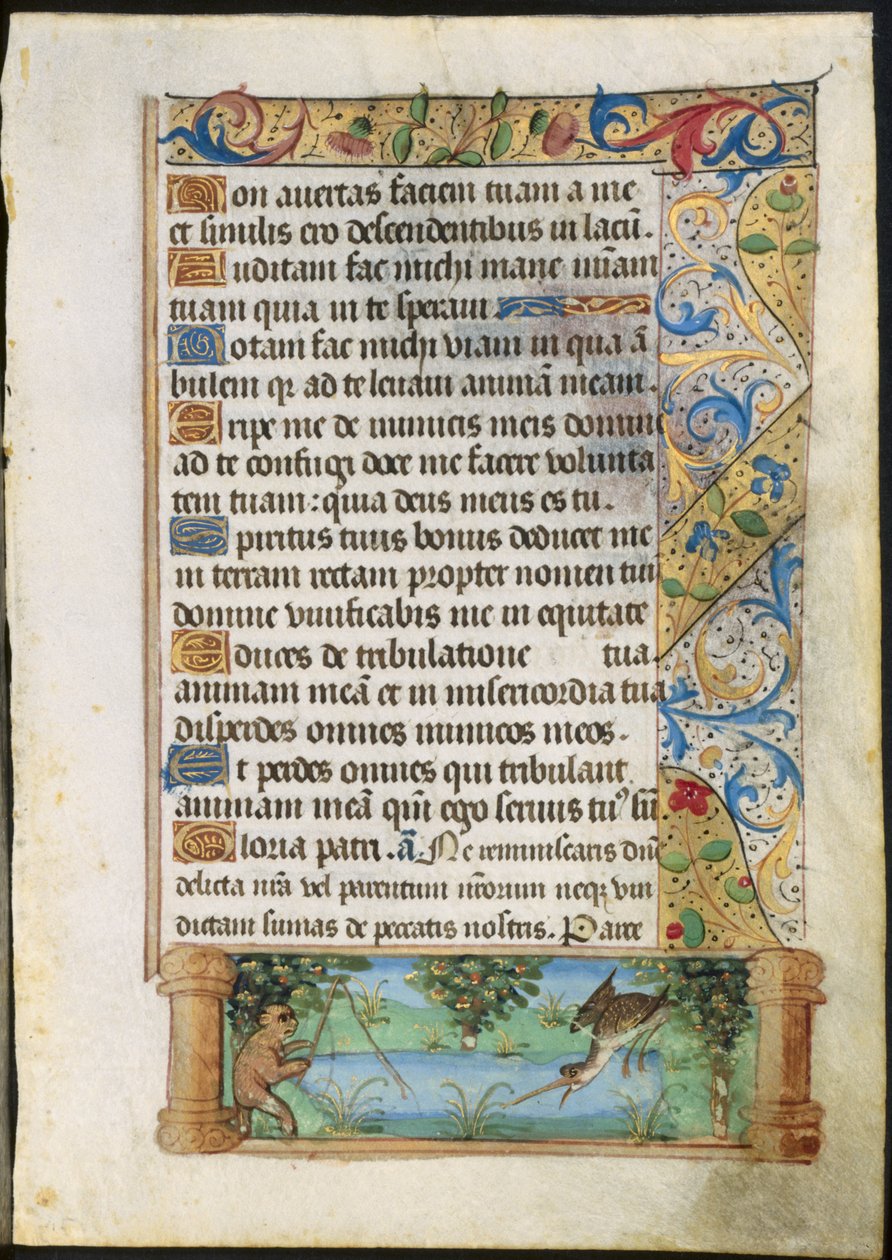 Non auertas faciem tuam a me
et similis ero descendentibus in lacū.
Auditam fac michi mane mīam
tuam quia in te speraui
Notam fac michi viam in qua ā
bulem qꝛ ad te leuaui animā meam.
Eripe me de inimicis meis domine
ad te confugi doce me facere volunta
tem tuam: quia deus meus es tu.
Spiritus tuus bonus deducet me
in terram rectam propter nomen tuū
domine viuificabis me in equitate
Educes de tribulatione tua.
animam meā et in misericordia tua
disperdes omnes inimicos meos.
Et perdes omnes qui tribulant
animam meā qm̄ ego seruus tuꝰ sū
Gloria patri. ā. Ne reminiscaris dn̄e
delicta nr̄a vel parentum nr̄orum neqꝫ vin
dictam sumas de peccatis nostris. Parce